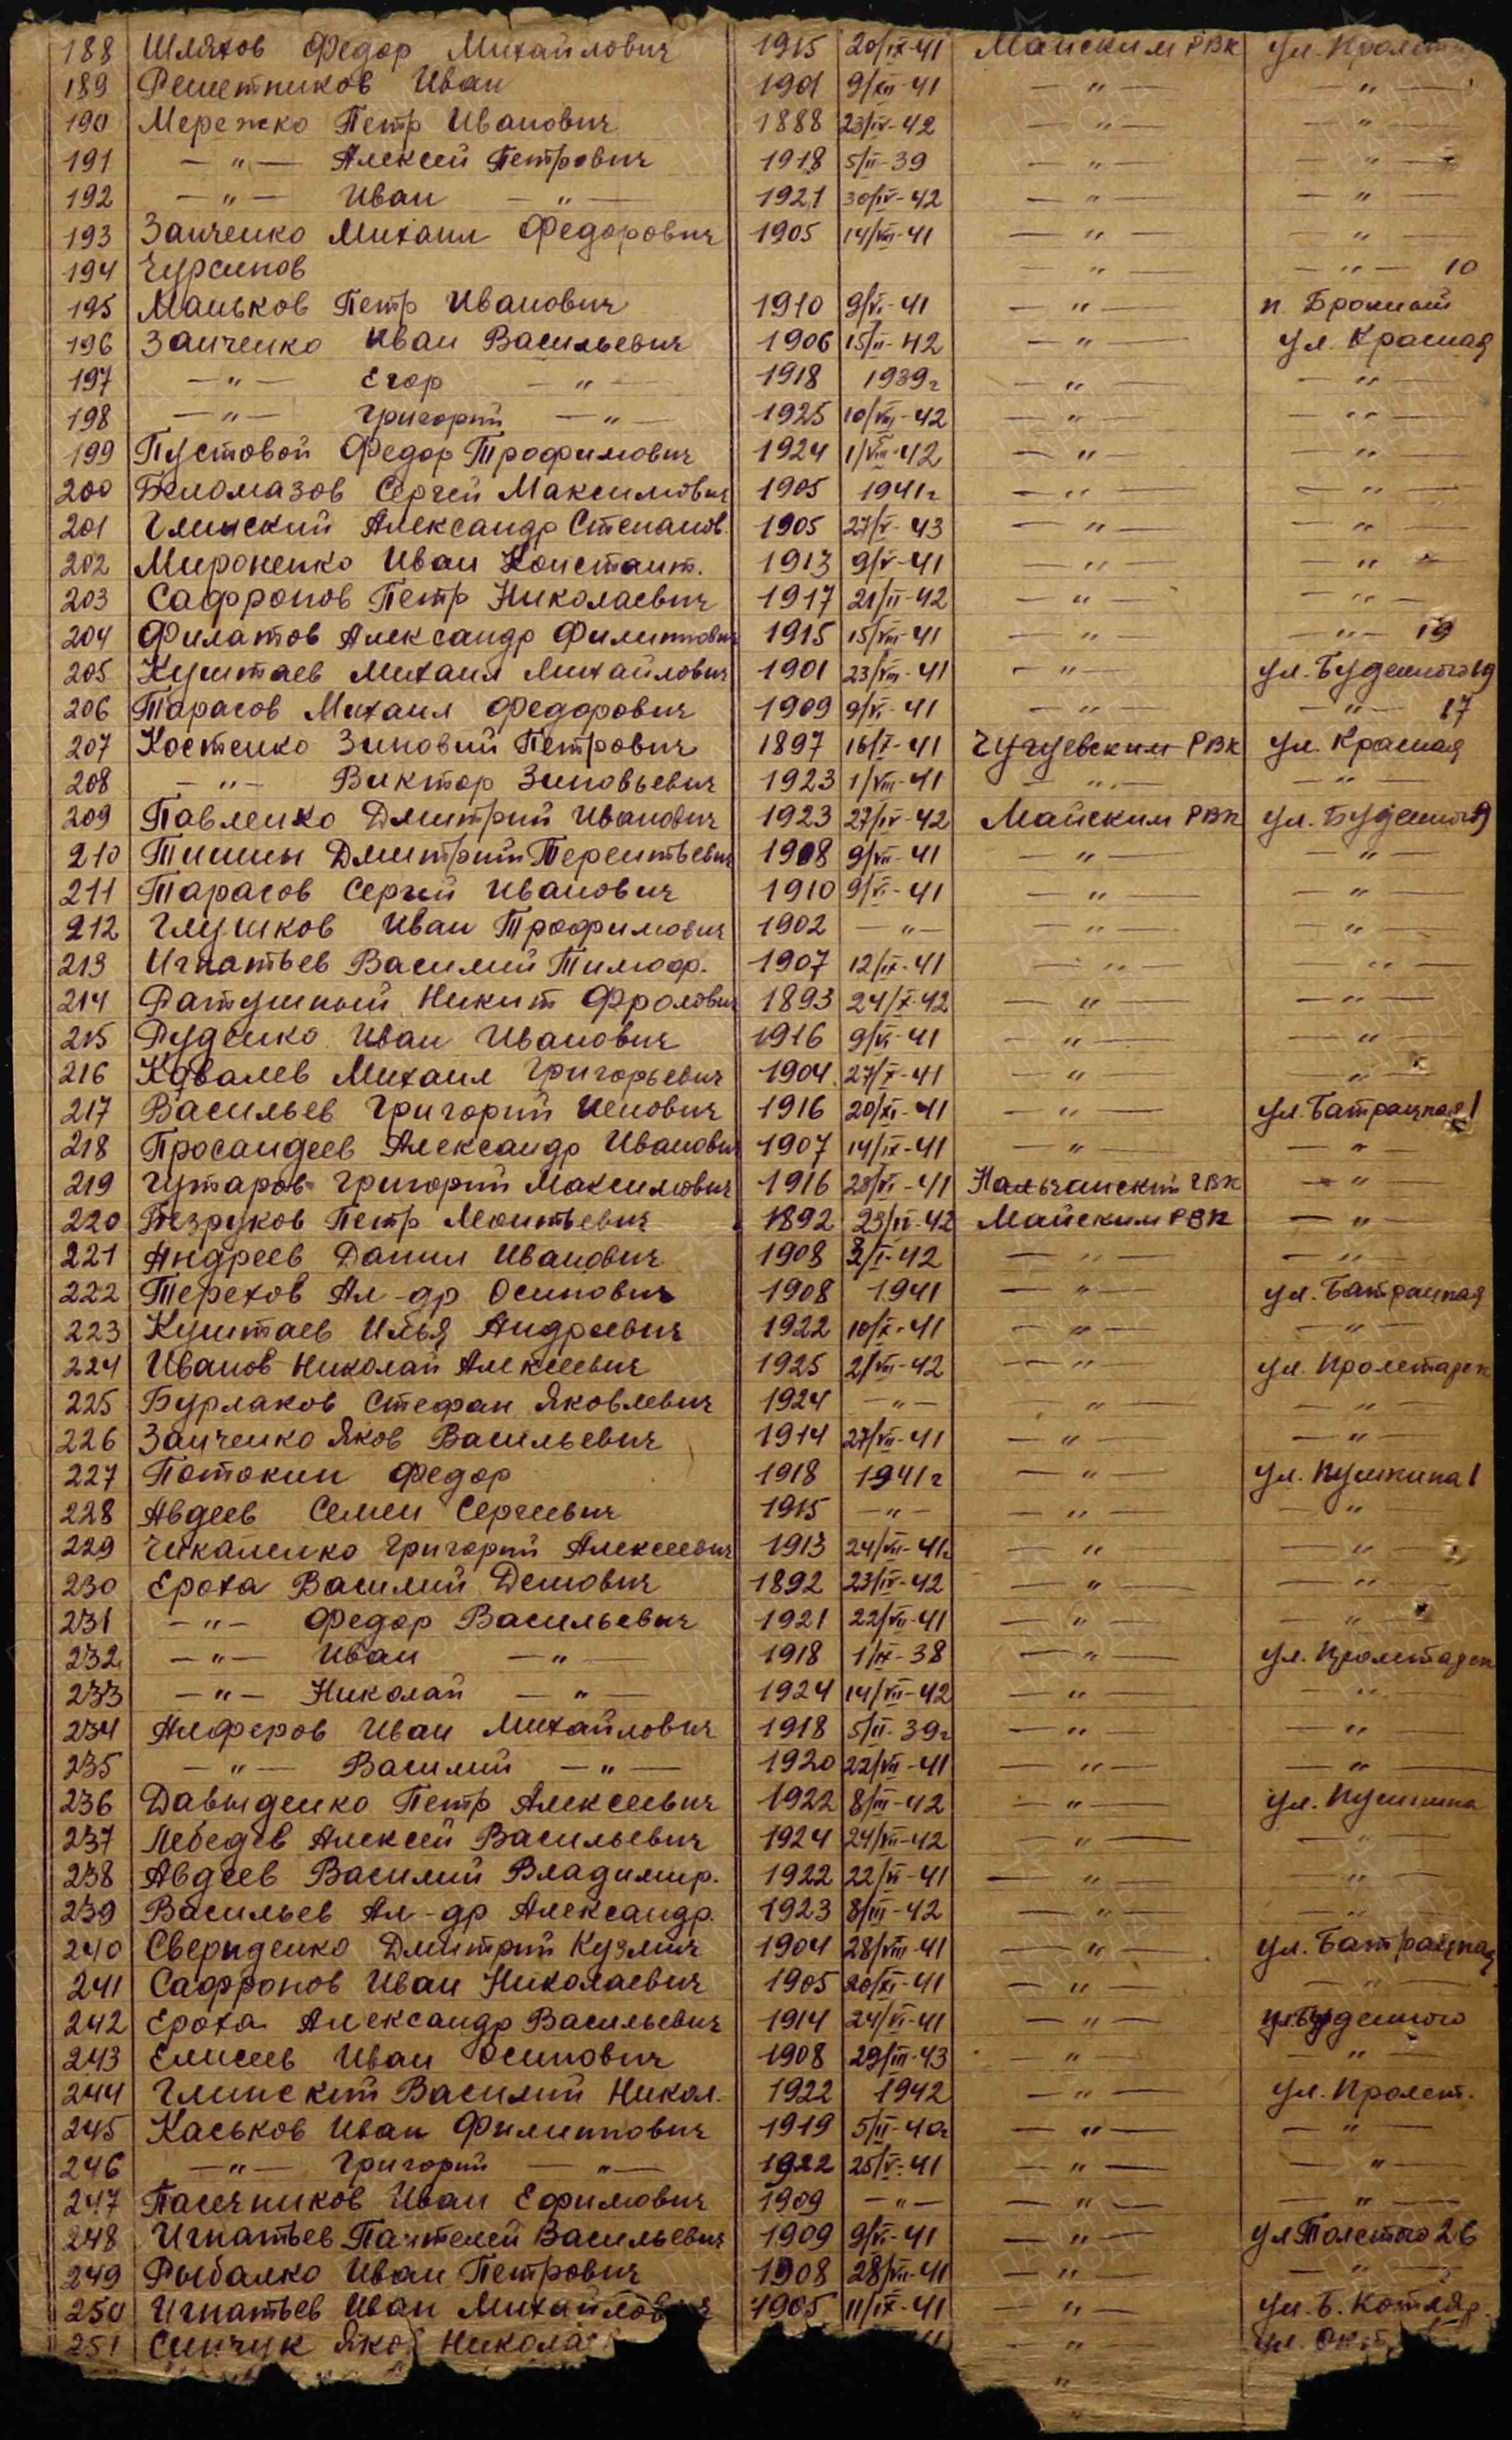 188 Шляхов Федор Михайлович 1915 20/IX-41 Майским РВК ул.
189 Решетников Иван 1901 9/XII-41 — " — — " —
190 Мережко Петр Иванович 1888 23/IV-42 — " — — " —
191 — " — Алексей Петрович 1918 5/II-39 — " — — " —
192 — " — Иван — " — 1921 30/IV-42 — " — — " —
193 Заиченко Михаил Федорович 1905 14/VIII-41 — " — — " —
194 Чурсинов — " — — " — 10
195 Маньков Петр Иванович 1910 9/VI-41 — " — п.
196 Заиченко Иван Васильевич 1906 15/II-42 — " — ул. Красная
197 — " — Егор — " — 1918 1939г — " — — " —
198 — " — Григорий — " — 1925 10/VIII-42 — " — — " —
199 Пустовой Федор Трофимович 1924 1/VIII-42 — " — — " —
200 Беломазов Сергей Максимович 1905 1941г — " — — " —
201 Глинский Александр Степанов. 1905 27/V-43 — " — — " —
202 Мироненко Иван Констант. 1913 9/V-41 — " — — " —
203 Сафронов Петр Николаевич 1917 21/II-42 — " — — " —
204 Филатов Александр Филиппович 1915 15/VIII-41 — " — — " — 19
205 Куштаев Михаил Михайлович 1901 23/VIII-41 — " — ул. Буденного
206 Тарасов Михаил Федорович 1909 9/VI-41 — " — — " — 17
207 Костенко Зиновий Петрович 1897 16/X-41 Чугуевским РВК ул. Красная
208 — " — Виктор Зиновьевич 1923 1/VIII-41 — " — — " —
209 Павленко Дмитрий Иванович 1923 27/IV-42 Майским РВК ул. Буденного
210 Тишин Дмитрий Терентьевич 1908 9/VII-41 — " — — " —
211 Тарасов Сергей Иванович 1910 9/VI-41 — " — — " —
212 Глушков Иван Трофимович 1902 — " — — " — — " —
213 Игнатьев Василий Тимоф. 1907 12/IX-41 — " — — " —
214 Ратушный Никит Фролович 1893 24/X-42 — " — — " —
215 Руденко Иван Иванович 1916 9/VI-41 — " — — " —
216 Ковалев Михаил Григорьевич 1904 27/X-41 — " — — " —
217 Васильев Григорий 1916 20/XI-41 — " — ул. Батрацкая 1
218 Просандеев Александр Иванович 1907 14/IX-41 — " — — " —
219 Гутаров Григорий Максимович 1916 28/VI-41 Нальчанский ГВК — " —
220 Безруков Петр Леонтьевич 1892 23/IV-42 Майским РВК — " —
221 Андреев Данил Иванович 1908 3/I-42 — " — — " —
222 Терехов Ал-др Осипович 1908 1941 — " — ул. Батрацкая
223 Куштаев Илья Андреевич 1922 10/X-41 — " — — " —
224 Иванов Николай Алексеевич 1925 2/VIII-42 — " — ул. Пролетарск
225 Бурлаков Стефан Яковлевич 1924 — " — — " — — " —
226 Заиченко Яков Васильевич 1914 27/VII-41 — " — — " —
227 Потокин Федор 1918 1941г — " — ул. Пушкина 1
228 Авдеев Семен Сергеевич 1915 — " — — " — — " —
229 Чикаленко Григорий Алексеевич 1913 24/VII-41г — " — — " —
230 Ероха Василий Демович 1892 23/IV-42 — " — — " —
231 — " — Федор Васильевич 1921 22/VII-41 — " — — " —
232 — " — Иван — " — 1918 1/IX-38 — " — ул. Пролетарск
233 — " — Николай — " — 1924 14/VII-42 — " — — " —
234 Алферов Иван Михайлович 1918 5/II-39г — " — — " —
235 — " — Василий — " — 1920 22/VII-41 — " — — " —
236 Давыденко Петр Алексеевич 1922 8/III-42 — " — ул. Пушкина
237 Лебедев Алексей Васильевич 1924 24/VII-42 — " — — " —
238 Авдеев Василий Владимир. 1922 22/VI-41 — " — — " —
239 Васильев Ал-др Александр. 1923 8/III-42 — " — — " —
240 Свериденко Дмитрий Кузмич 1904 28/VIII-41 — " — ул. Батрацкая
241 Сафронов Иван Николаевич 1905 20/XI-41 — " — — " —
242 Ероха Александр Васильевич 1914 24/VI-41 — " — ул. Буденного
243 Елисеев Иван Осипович 1908 29/III-43 — " — — " —
244 Глинский Василий Никол. 1922 1942 — " — ул. Пролет.
245 Каськов Иван Филиппович 1919 5/II-40г — " — — " —
246 — " — Григорий — " — 1922 25/V-41 — " — — " —
247 Пасечников Иван Ефимович 1909 — " — — " — — " —
248 Игнатьев Пантелей Васильевич 1909 9/VI-41 — " — ул Толстого 26
249 Рыбалко Иван Петрович 1908 28/VII-41 — " — — " —
250 Игнатьев Иван Михайлович 1905 11/IX-41 — " — ул. Б. Котляр.
251 Синчук Яков Никола — " — ул.
— " —